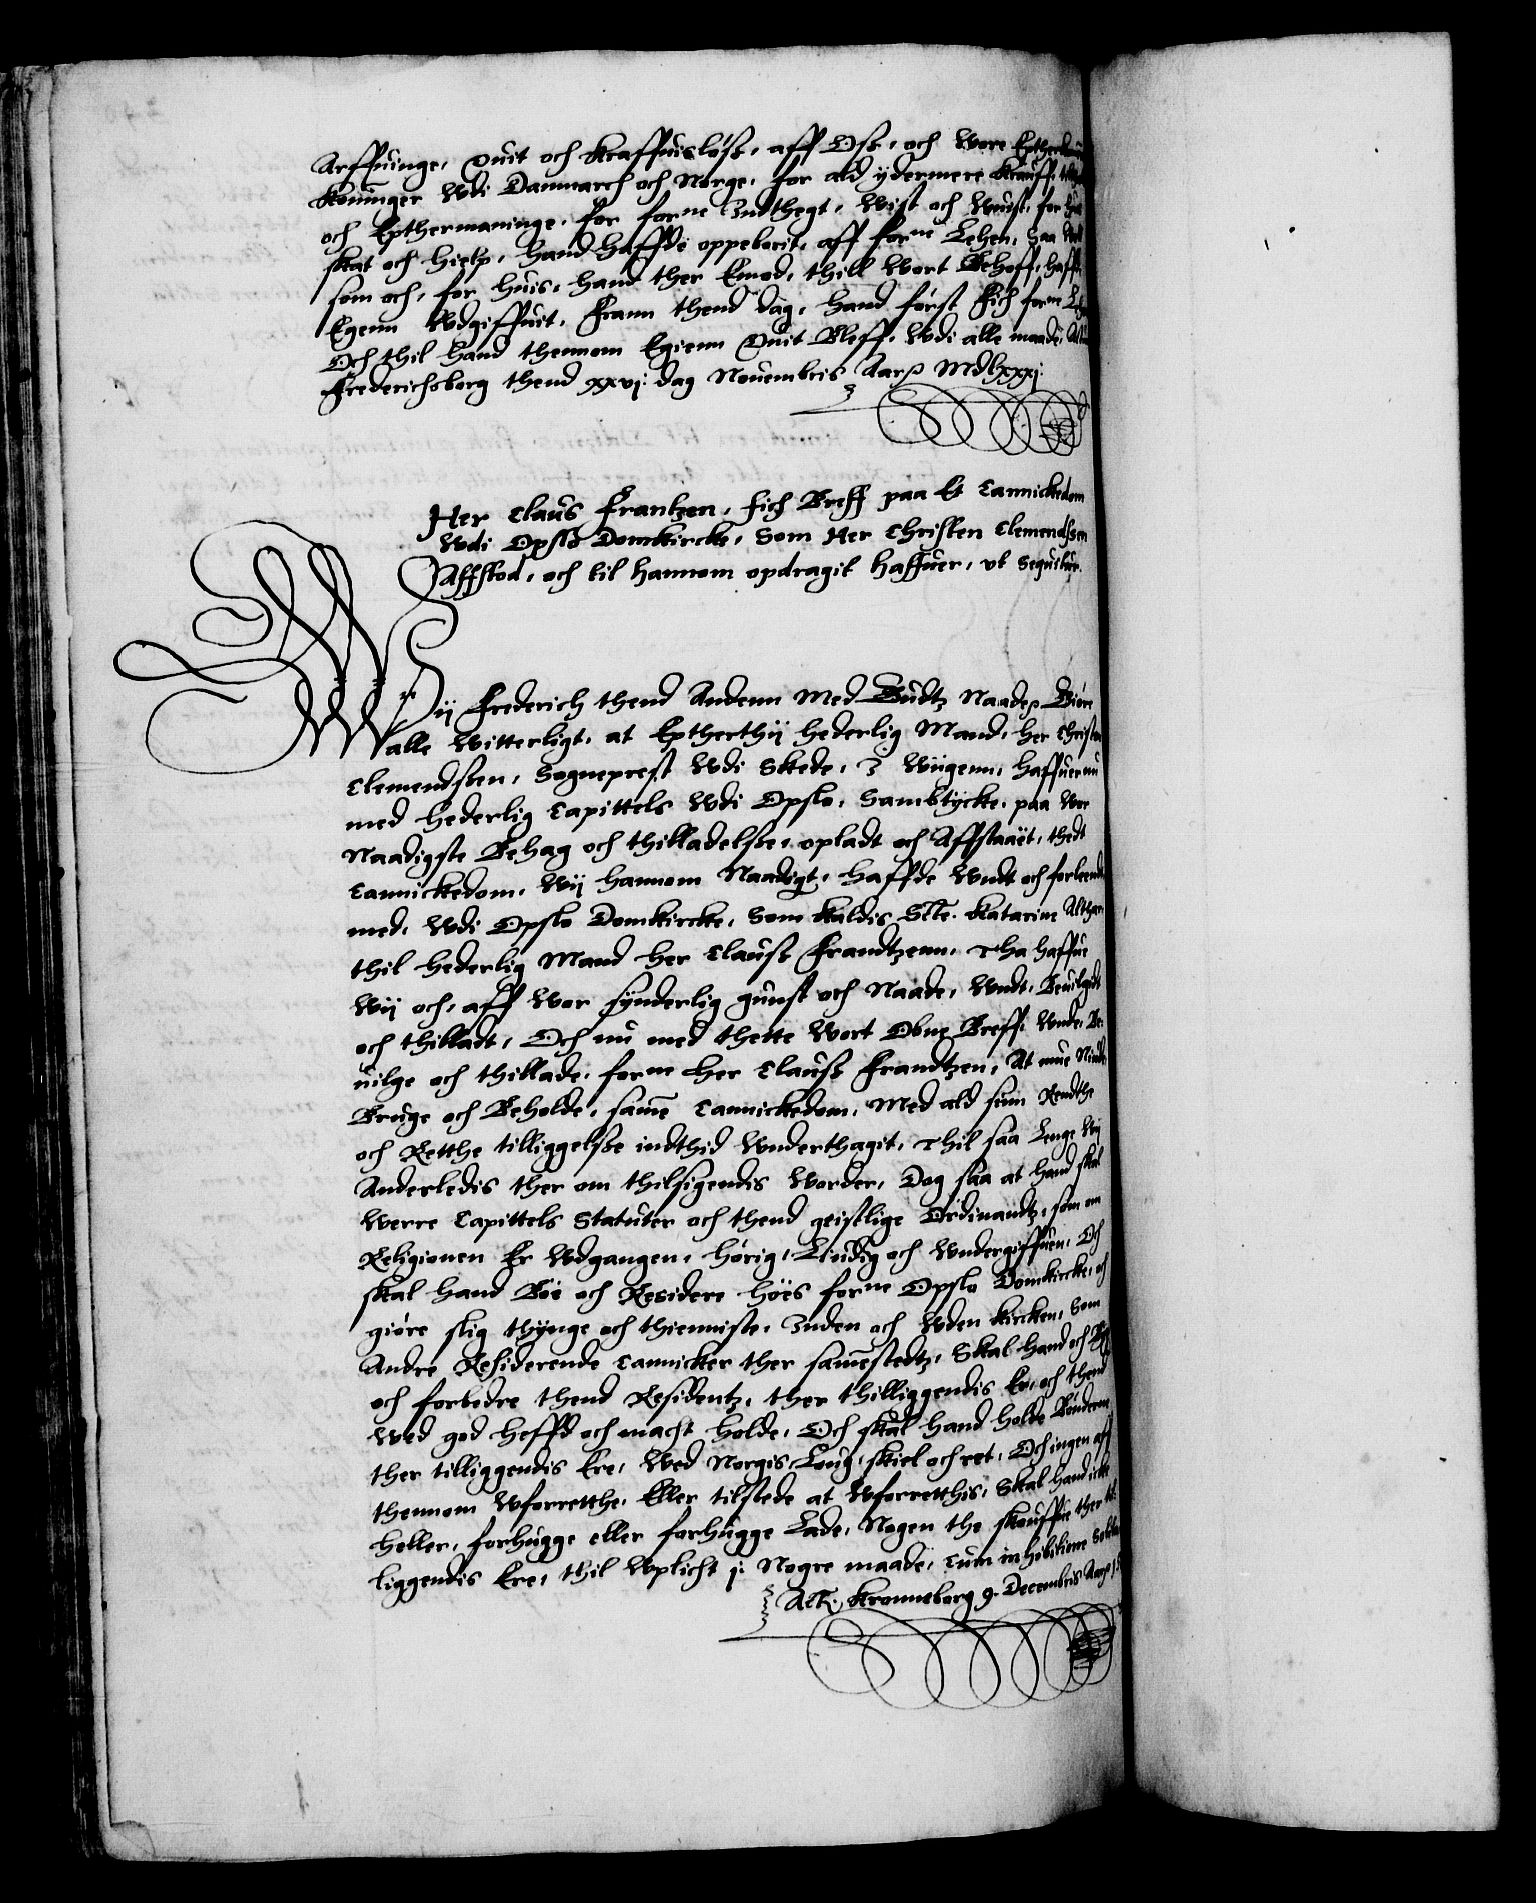 Arffuinge, Quit och Kraffuisløss, aff Oss, och Wore
Konninger Wdi Danmarch och Norge, for ald ydermere Krauff,
och Epthermaninge, for forne Indthegt, Wist och Wuist, for
skat och hielp, hand haffde oppeborit, aff forne Lehen, saa
som och, for huis, hand ther Emod, thill Wort Behoff, haff
Egenn Wdgiffuit, Frann thend dag, hand først Fich forne
Och thil hand thennom Egienn Quit Bleff, Wdi alle maade,
Frederichsborg thend xxvj: dag Nouembris Aarss Mdlxxxj.
Her Claus Frantzen, fich Breff paa Et Cannickedom
Wdi Opslo Domkircke, Som Her Christen Clemendssen
Affstod, och til hannom opdragit haffuer, vt Sequitur.
Wij Frederich thend Andenn Med Gudtz Naade, Giøre
alle Witterligt, at Eptherthij hederlig Mand, her Christen
Clemendssen, Sogneprest Wdi Skede, I Wiigenn, haffuer nu
med hederlig Capittels Wdi Opslo, Sambtycke, paa Wor
Naadigste Behag och thilladelsse, opladt och Affstaaet, thedt
Cannickedom, Wij hannom Naadigt, haffde Wndt och forleendt
med, Wdi Opslo Domkircke, Som Kaldis Ste. Katarine Althar
thil hederlig Mand her Clauss Frandtzenn, Tha haffue
Wij och, aff Wor synderlig gunst och Naade, Wndt, Beuilget
och thilladt, Och nu med thette Wort Obne Breff, Wnde, Be¬
uilge och thillade, forne her Clauss Frandtzen, At mue Niude
Bruge och Beholde, same Cannickedom, Med ald sinn Rendthe
och Retthe tilliggelsse indthid Wnderthagit, Thil saa Lenge Wij
Anderledis ther om thilsigendis Worder, Dog saa at hand skal
Werre Capittels Statuter och thend geistlige Ordinandtz, som om
Religionen Er Wdgangen, hørig, Liudig och Wndergiffuen, Och
skal hand Boe och Residere hoes forne Opslo Domkircke, och
giøre slig thynge och thienniste, Inden och Wden Kircken, Som
Andre Residerende Cannicker ther samestedtz, Skal hand och
och forbedre thend Residentz, ther thilliggendis Er, och thend
Wed god heffd och macht holde, Och skal hand holde Bønderne
ther tilliggendis Ere, Wed Norgis Loug, skiel och ret, Och ingen aff
thennom Wforretthe, Eller tilstede at Wforretthis, Skal hand icke
heller, forhugge eller forhugge Lade, Nogen the skouffue ther til
liggendis Ere, thil Wplicht j: Nogre maade, Cum inhibitione Solita
Actum Kronneborg 9. Decembris Aar